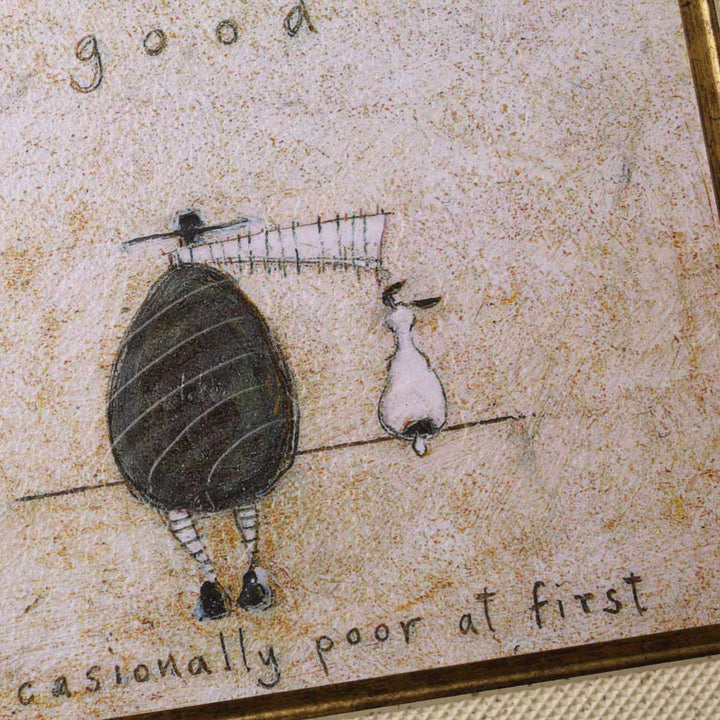 good
casionally poor at first